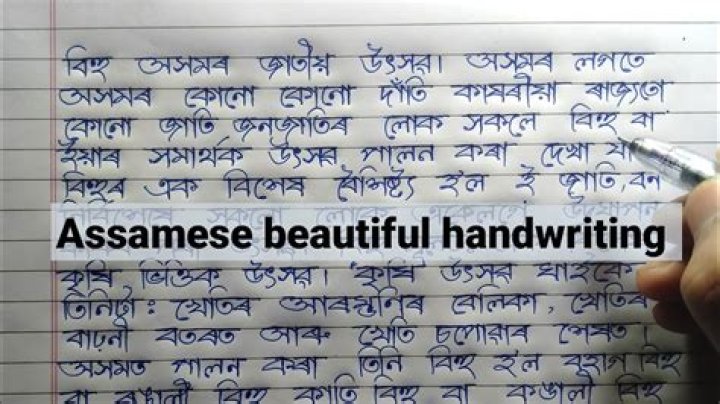 বিহু অসমৰ জাতীয় উৎসৱ। অসমৰ লগতে
অসমৰ কোনো কোনো দাঁতি কাষৰীয়া ৰাজ্যতো
কোনো জাতি জনজাতিৰ লোক সকলে বিহু বা
ইয়াৰ সমাৰ্থক উৎসৱ পালন কৰা দেখা যা
বিহুৰ এক বিশেষ বৈশিষ্ট্য হ'ল ই জাতি, বৰ্ন
নিৰ্বিশেষে সকলো লোকে একেলগে উদযাপন
Assamese beautiful handwriting
কৃষি ভিত্তিক উৎসৱ। কৃষি উৎসৱ ঘাইকৈ
তিনিটা: খেতিৰ আৰম্ভণিৰ বেলিকা, খেতিৰ
বাঢ়নী বতৰত আৰু খেতি চপোৱাৰ শেষত।
অসমত পালন কৰা তিনি বিহু হ'ল ব'হাগ বিহু
বা ৰঙালী বিহু কাতি বিহু বা কঙালী বিহু